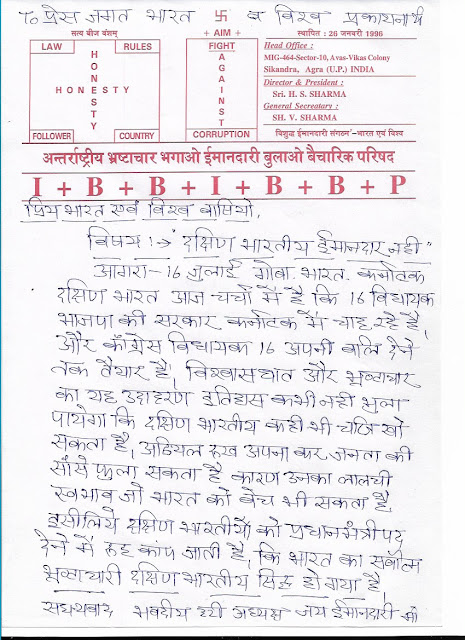 To प्रेस जगत भारत 卐 व विश्व प्रकाशनार्थ
सत्य बीज वंशम्
LAW RULES
HONESTY
HONESTY
FOLLOWER COUNTRY
+ AIM +
FIGHT
AGAINST
CORRUPTION
स्थापित : 26 जनवरी 1996
Head Office :
MIG-464-Sector-10, Avas-Vikas Colony
Sikandra, Agra (U.P.) INDIA
Director & President :
Sri. H. S. SHARMA
General Secreatary :
SH. V. SHARMA
विशुद्ध ईमानदारी संगठन -भारत एवं विश्व
अन्तर्राष्ट्रीय भ्रष्टाचार भगाओ ईमानदारी बुलाओ वैचारिक परिषद
I + B + B + I + B + B + P
प्रिय भारत एवं विश्व वासियो,
विषय :→ "दक्षिण भारतीय ईमानदार नही"
आगरा-16 जुलाई गोवा भारत. कर्नाटक
दक्षिण भारत आज चर्चा में है कि 16 विधायक
भाजपा की सरकार कर्नाटक में चाह रहे है,
और काँग्रेस विधायक 16 अपनी बलि देने
तक तैयार है, विश्वासघात और भ्रष्टाचार
का यह उदाहरण इतिहास कभी नही भुला
पायेगा कि दक्षिण भारतीय कही भी चरित्र खो
सकता है, अडियल रूख अपना कर जनता की
साँसे फुला सकता है कारण उनका लालची
स्वभाव जो भारत को बेच भी सकता है,
इसीलिये दक्षिण भारतीयों को प्रधानमंत्री पद
देने में रूह कांप जाती है, कि भारत का सर्वोत्तम
भ्रष्टाचारी दक्षिण भारतीय सिद्ध हो गया है,
सधन्यवाद भवदीय अध्यक्ष जय ईमानदारी की